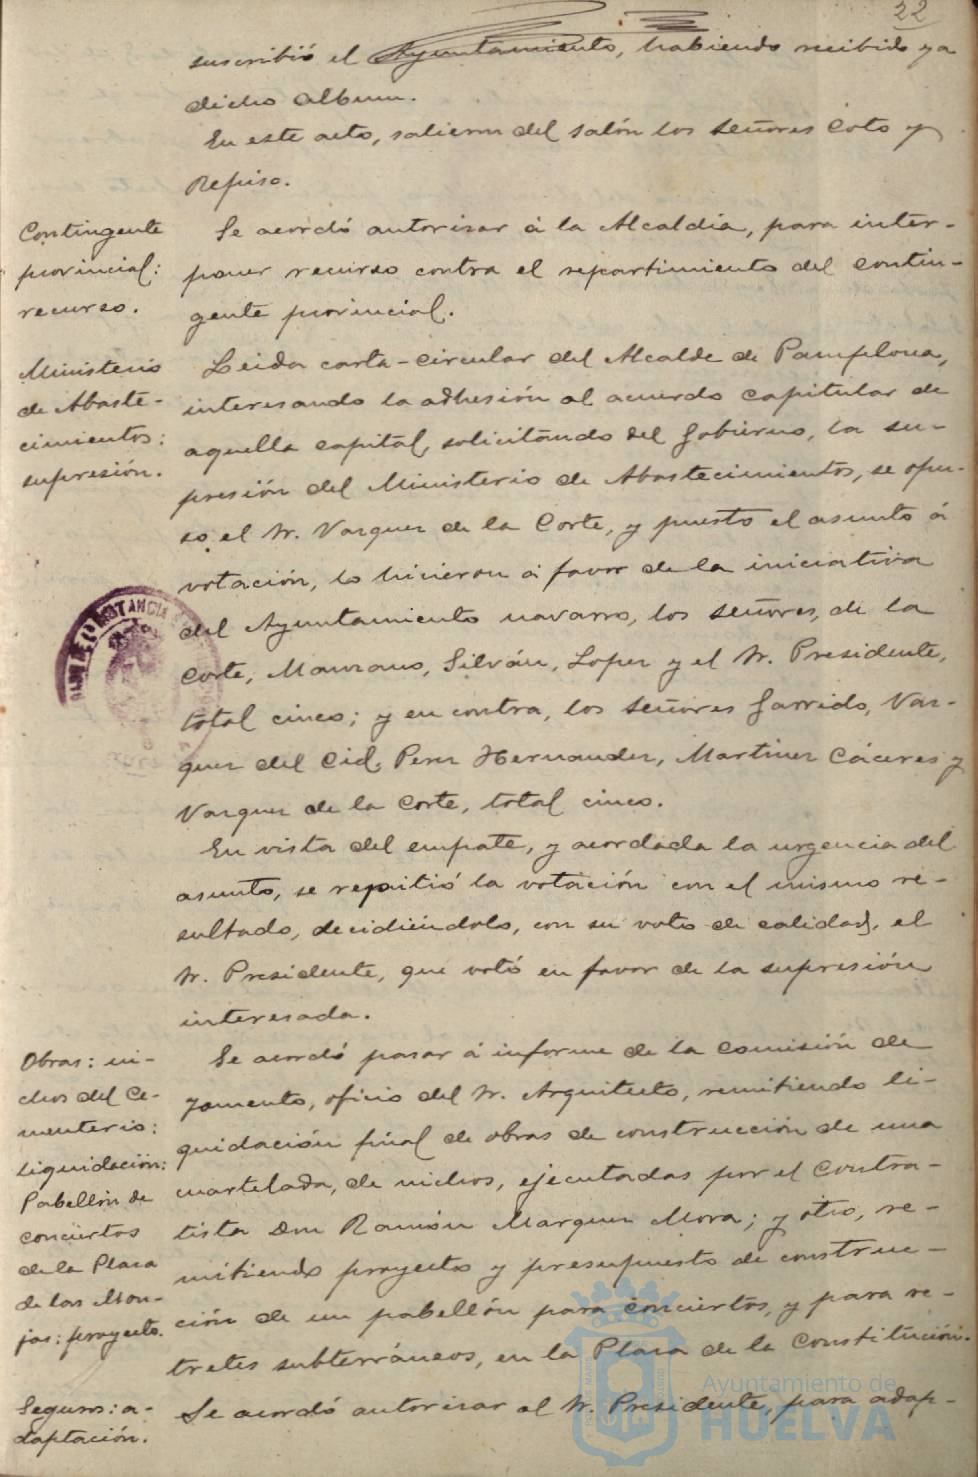 22
suscribió el Ayuntamiento, habiendo recibido ya
dicho album.
En este acto, salieron del salón los señores Coto y
Repiso.
Contingente
provincial:
recurso.
Se acordó autorizar á la Alcaldia, para inter-
poner recurso contra el repartimiento del contin-
gente provincial.
Ministerio
de Abaste-
cimientos:
supresión.
Leida carta-circular del Alcalde de Pamplona,
interesando la adhesión al acuerdo capitular de
aquella capital, solicitando del Gobierno, la su-
presión del Ministerio de Abastecimientos, se opu-
so el Sr. Vazquez de la Corte, y puesto el asunto á
votación, lo hicieron á favor de la iniciativa
del Ayuntamiento navarro, los señores, de la
Corte, Manzano, Silván, Lopez y el Sr. Presidente,
total cinco; y en contra, los señores Garrido, Vaz-
quez del Cid, Perez Hernandez, Martinez Cáceres y
Vazquez de la Corte, total cinco.
En vista del empate, y acordada la urgencia del
asunto, se repitió la votación con el mismo re-
sultado, decidiéndolo, con su voto de calidad, el
Sr. Presidente, que votó en favor de la supresión
interesada.
Obras: ni-
chos del Ce-
menterio:
liquidación:
Pabellón de
conciertos
de la Plaza
de las Mon-
jas: proyecto.
Se acordó pasar á informe de la Comisión de
Fomento, oficio del Sr. Arquitecto, remitiendo li-
quidación final de obras de construcción de una
cuartelada, de nichos, ejecutadas por el Contra-
tista Don Ramón Marquez Mora; y otro, re-
mitiendo proyecto y presupuesto de construc-
ción de un pabellón para conciertos, y para re-
tretes subterráneos, en la Plaza de la Constitución.
Seguros: a-
daptación.
Se acordó autorizar al Sr. Presidente, para adap-
Ayuntamiento de
HUELVA